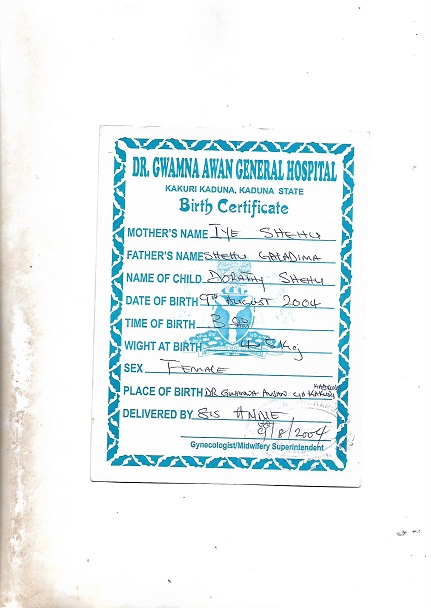 DR. GWAMNA AWAN GENERAL HOSPITAL
KAKURI KADUNA, KADUNA STATE
Birth Certificate
MOTHER'S NAME IYE SHEHU
FATHER'S NAME SHEHU GALADIMA
NAME OF CHILD DORATHY SHEHU
DATE OF BIRTH 9TH AUGUST 2004
TIME OF BIRTH
WIGHT AT BIRTH Kg
SEX FEMALE
PLACE OF BIRTH DR GWAMNA AWAN KAKURI
DELIVERED BY SIS ANNE
9/8/2004
Gynecologist/Midwifery Superintendent